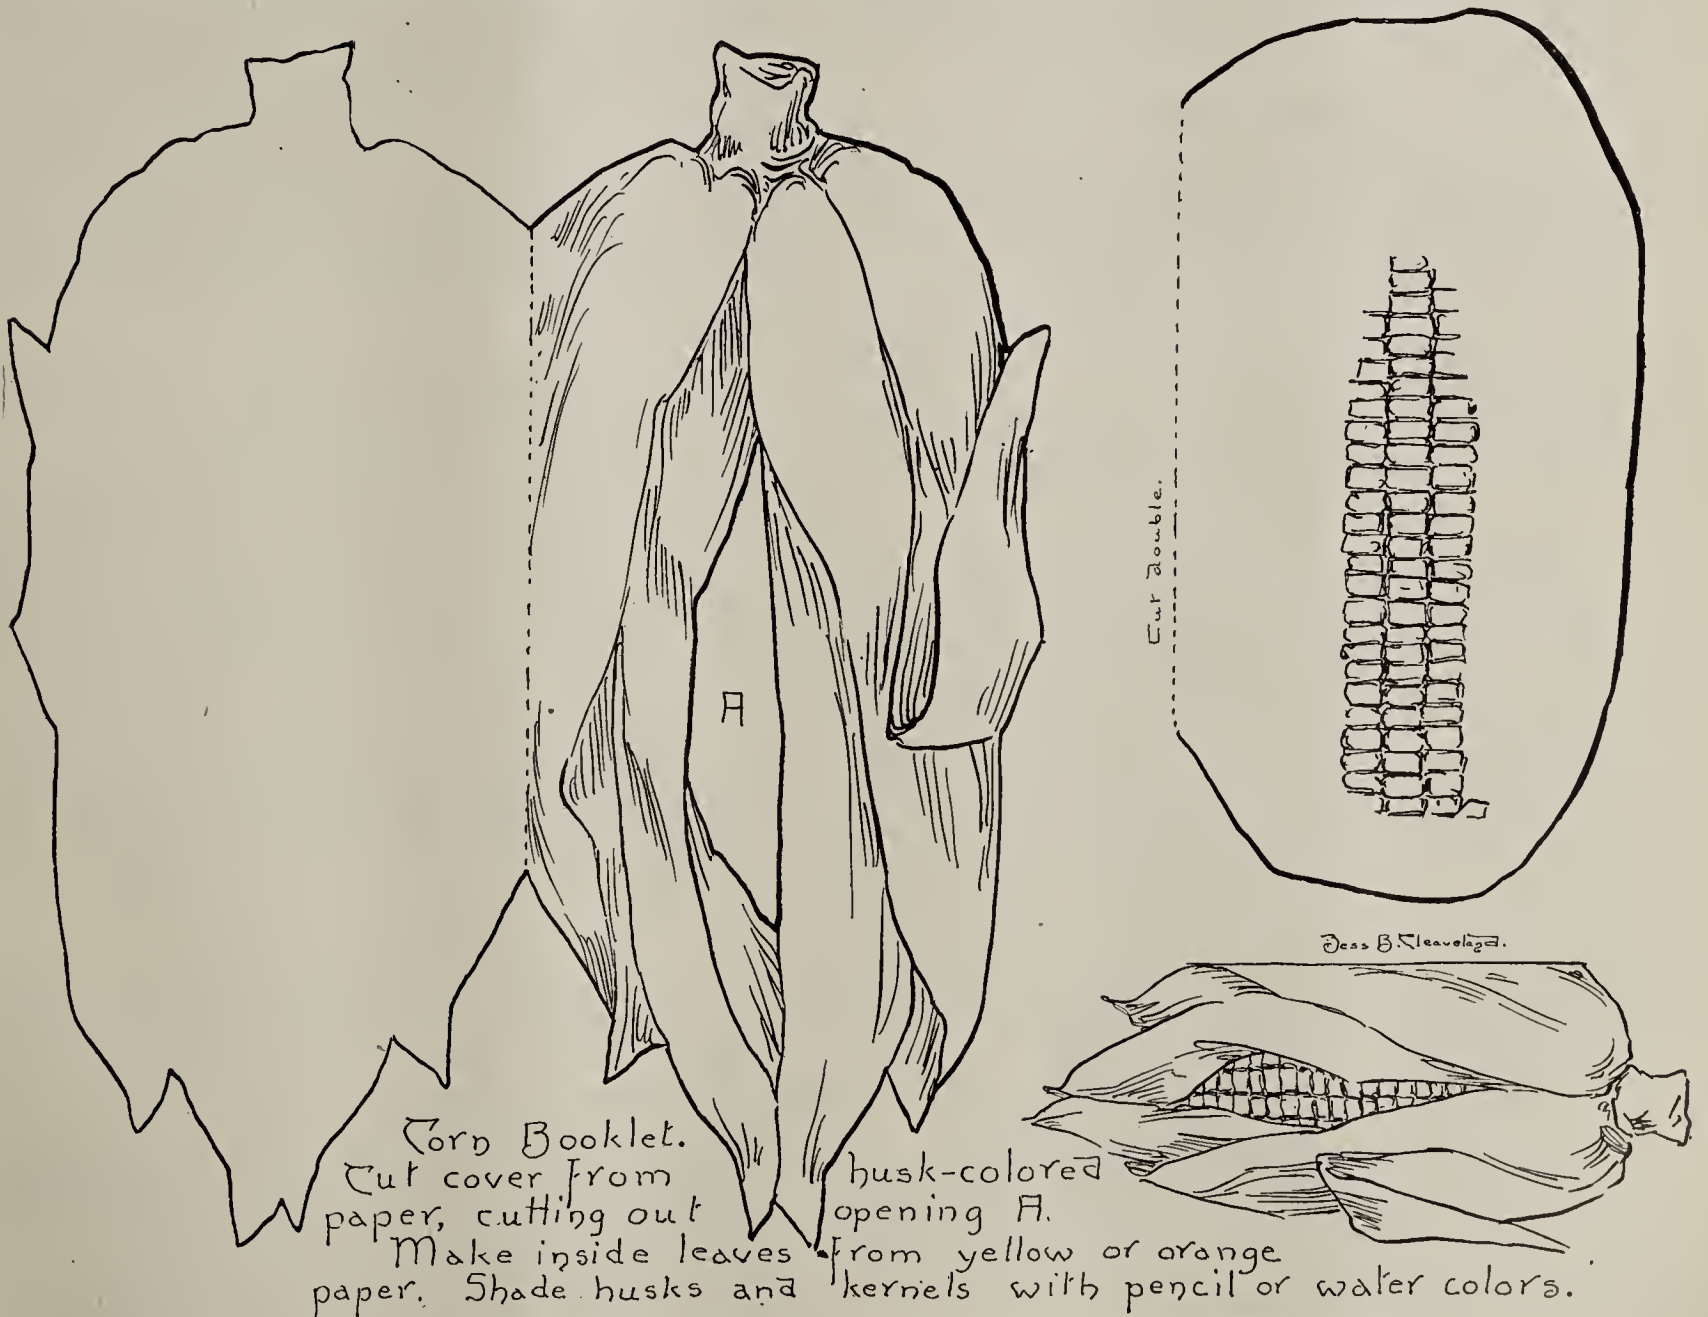 A
Cut double.
Jess B. Cleaveland.
Corn Booklet.
Cut cover from husk-colored
paper, cutting out opening A.
Make inside leaves from yellow or orange
paper. Shade husks and kernels with pencil or water colors.